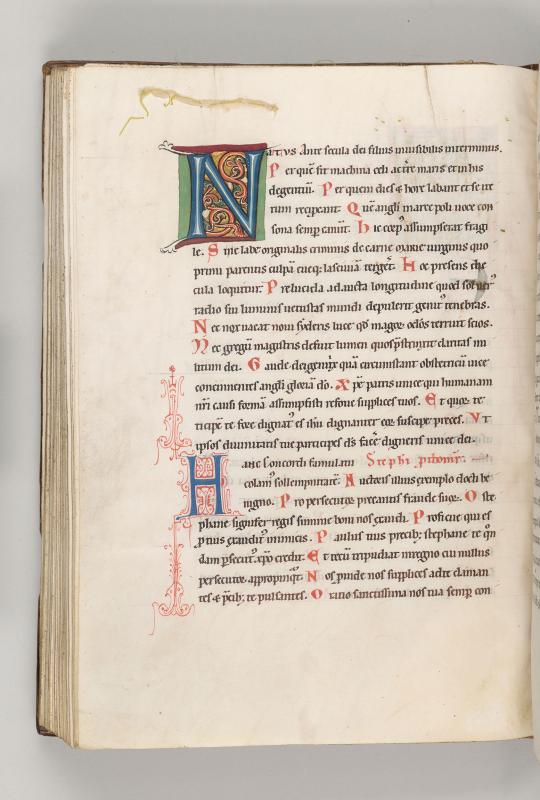 Natus Ante secula dei filius inuisibilis interminus.
Per quē fit machina celi ac t̄re maris et in his
degentiū. Per quem dies & hore labant et se ite
rum recipiant. Quē angli in arce poli uoce con
sona semp canūt. Hic corp assumpserat fragi
le. Sine labe originalis criminis de carne marie uirginis quo
primi parentis culpā eueq; lasciuiā tergeret. Hoc presens die
cula loquitur. Prelucida adaucta longitudine quod sol uer
radio sui luminis uetustas mundi depulerit genit tenebras.
Nec nox uacat noui syderis luce qd magor oclos terruit scios.
Nec gregū magistris defuit lumen quos p̄strinxit claritas mi
litum dei. Gaude dei genitrix quā circumstant obstetricū uice
concinentes angli gloriā dō. Xpe patris unice qui humanam
nr̄i causi formā assumpsisti refoue supplices tuos. Et quor te
ticipē te fore dignat es ihu dignanter eor suscipe preces. Vt
ipsos diuinitatis tue participes ds facē digneris unice dei.
Hanc concordi famulatu Stephi ptomr.
colam sollempnitatē. Auctoris illius exemplo docti be
nigno. Pro persecutor precantis fraude suor. O ste
phane signifer regis summe boni nos exaudi. Proficue qui es
p tuis exaudit inimicis. Paulus tuis precib; stephane te qn
dam psecut xpo credit. Et tecū tripudiat in regno cui nullus
persecutor appropinqt. Nos pinde nos supplices ad te claman
tes & pcib; te pulsantes. Oratio sanctissima nos tua semp con